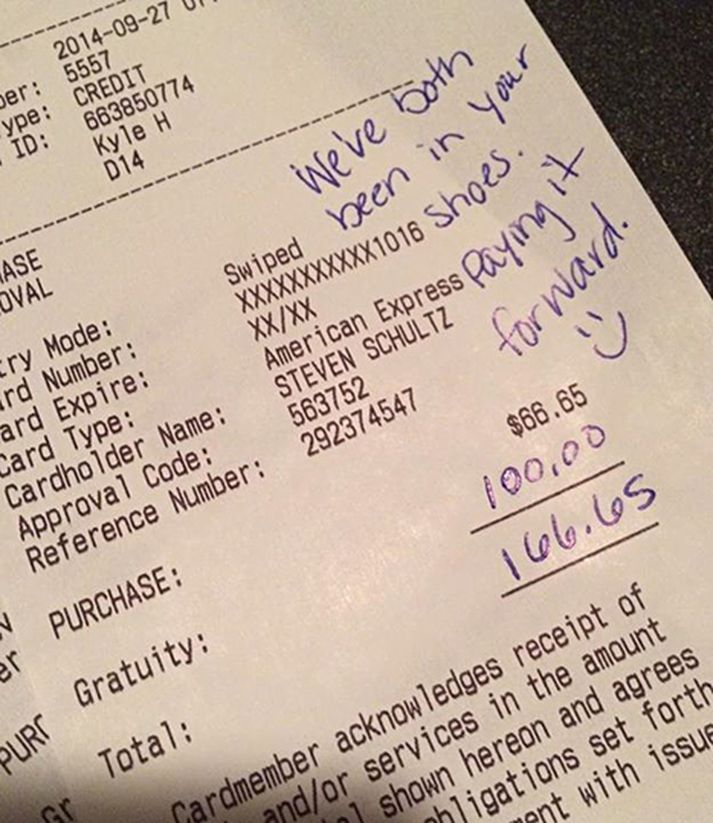 2014-09-27
5557
ype: CREDIT
ID: 663850774
Kyle H
D14
We've both
been in your
shoes.
Paying it
forward.
:)
ASE
OVAL
try Mode: Swiped
rd Number: XXXXXXXXXXX1016
ard Expire: XX/XX
Card Type: American Express
Cardholder Name: STEVEN SCHULTZ
Approval Code: 563752
Reference Number: 292374547
PURCHASE: $66.65
Gratuity: 100.00
Total: 166.65
Cardmember acknowledges receipt of
and/or services in the amount
shown hereon and agrees
obligations set forth
ent with issue